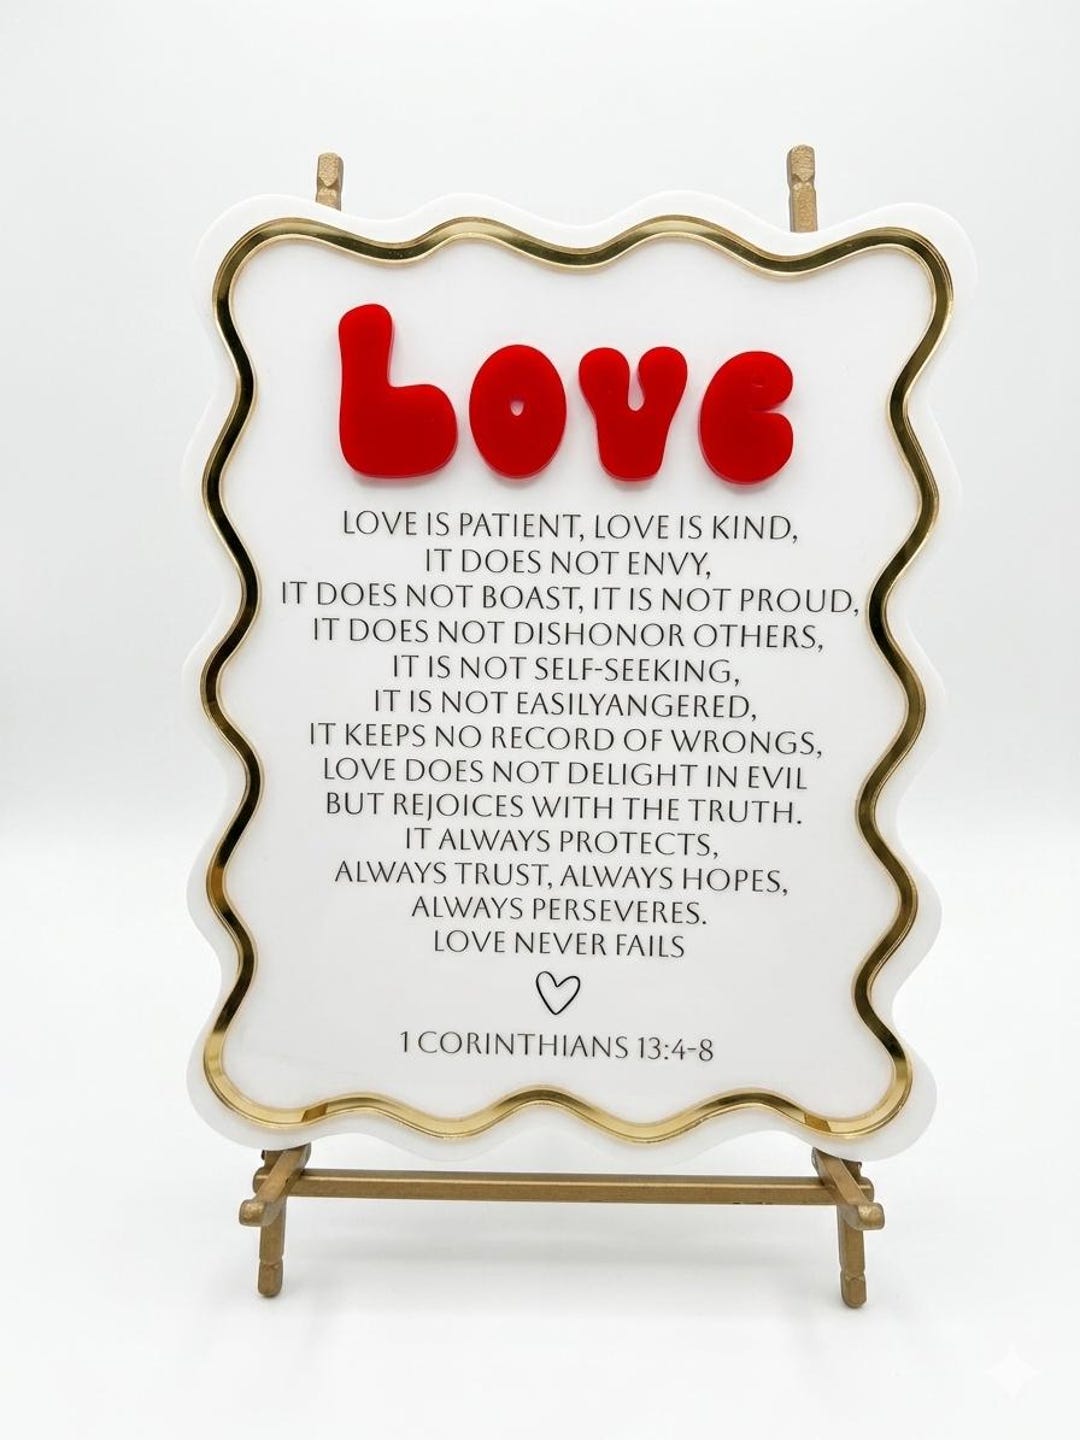 Love
LOVE IS PATIENT, LOVE IS KIND,
IT DOES NOT ENVY,
IT DOES NOT BOAST, IT IS NOT PROUD,
IT DOES NOT DISHONOR OTHERS,
IT IS NOT SELF-SEEKING,
IT IS NOT EASILYANGERED,
IT KEEPS NO RECORD OF WRONGS,
LOVE DOES NOT DELIGHT IN EVIL
BUT REJOICES WITH THE TRUTH.
IT ALWAYS PROTECTS,
ALWAYS TRUST, ALWAYS HOPES,
ALWAYS PERSEVERES.
LOVE NEVER FAILS
1 CORINTHIANS 13:4-8